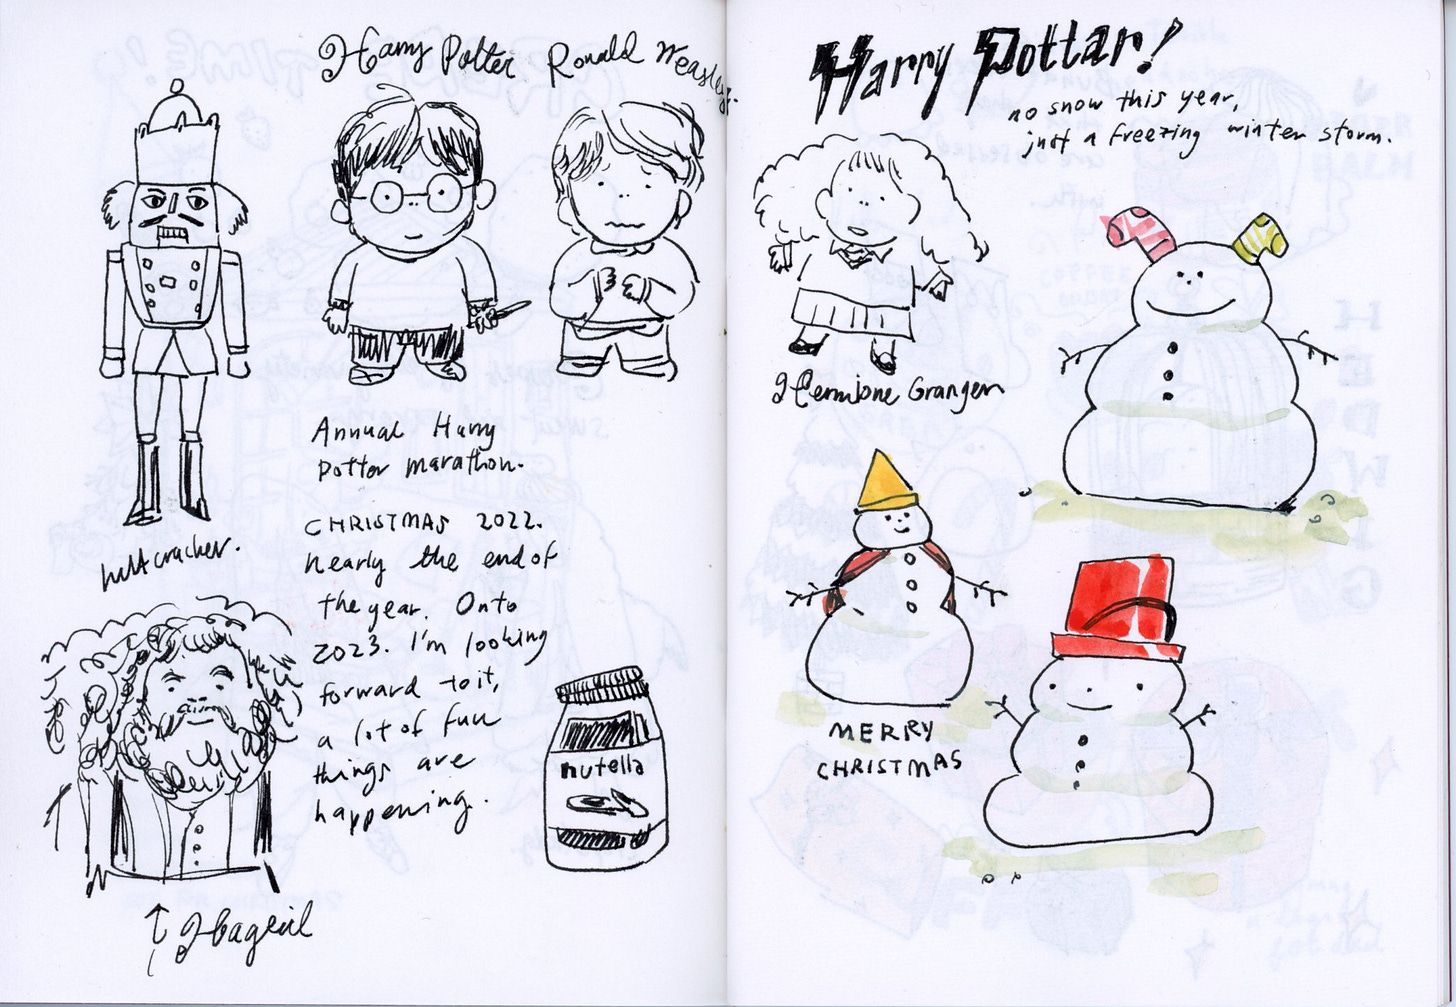 Harry Potter Ronald Weasley.
nutcracker.
Annual Harry
Potter marathon.
CHRISTMAS 2022.
nearly the end of
the year. Onto
2023. I'm looking
forward to it,
a lot of fun
things are
happening.
nutella
↑ Hagrid
Harry Potter!
no snow this year,
just a freezing winter storm.
Hermione Granger
MERRY
CHRISTMAS